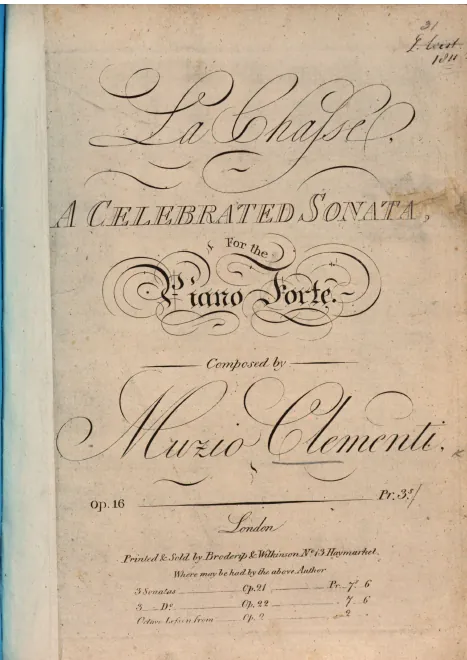 31
1811
La Chasse.
A CELEBRATED SONATA,
For the
Piano Forte.
Composed by
Muzio Clementi.
Op. 16 Pr. 3s/
London
Printed & Sold by Broderip & Wilkinson No. 13 Haymarket.
Where may be had by the above Author
3 Sonatas Op. 21 Pr. 7s 6
3 Do. Op. 22 7 6
Octave Lesson from Op. 2 2